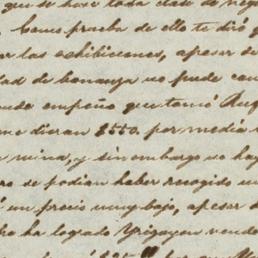 que se hace toda clase de neg
. Como prueba de ello te diré q
ar las exhibiciones, apesar de
dad de bonanza no puede con
empeño que tomó Rug
me dieran $550. por media
mina, y sin embargo no hay
ro se podian haber recogido
un precio muy bajo, apesar d
ha logrado Yrigoyen vende